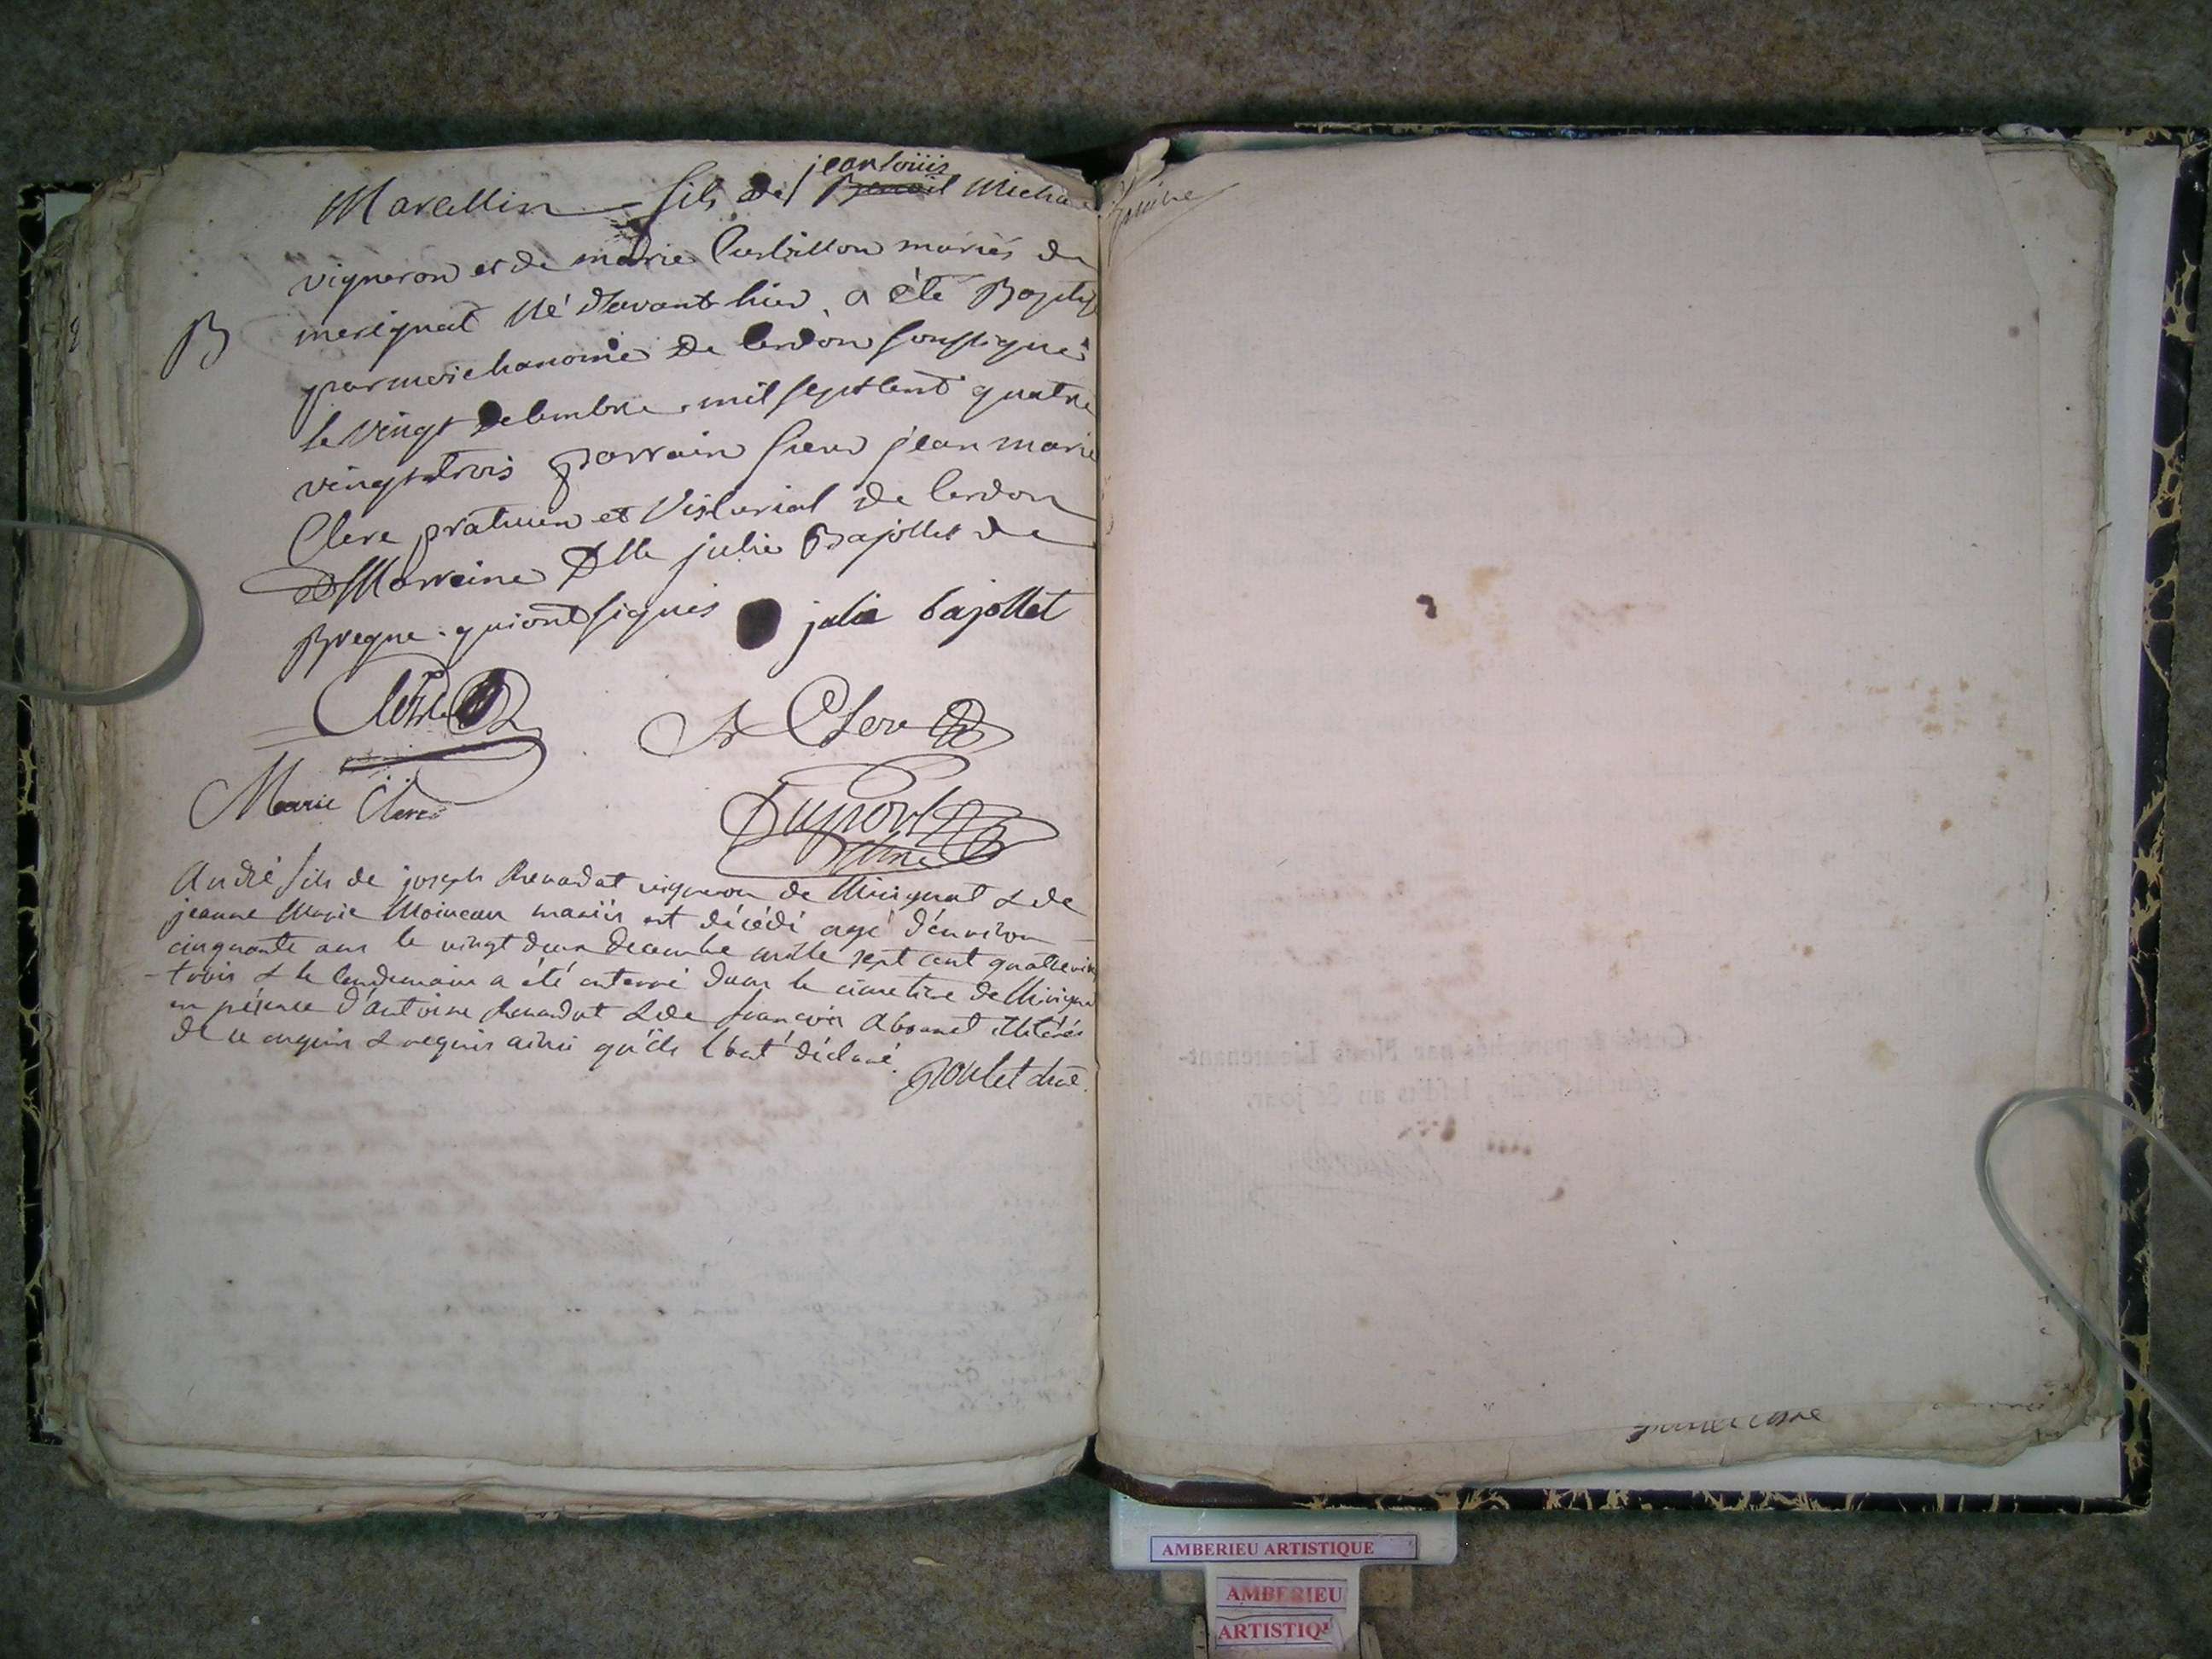 jean louis
Marcellin fils de Benoit Micha
vigneron et de marie Curbillon mariés de
B
merignat né d'avant hier a été Baptisé
par moi chanoine de Cerdon soussigné
le vingt decembre mil sept cent quatre
vingt trois parrain sieur jean marie
Clerc praticien et de Cerdon
et Marraine Dlle julie Bajollet de
Bregne qui ont signés julie bajollet
Clerc
Clerc
Marie Clerc
Dupont
André fils de joseph Renadat vigneron de Mérignat & de
jeanne Marie Moineau mariés est décédé agé d'environ
cinquante ans le vingt deux decembre mille sept cent quatrevin
- trois & le lendemain a été enterré dans le cimetiere de Mérigna
en présence d'antoine Renadat & de françois Abonnet illitérés
de ce enquis & requis ainsi qu'ils l'ont déclaré.
AMBERIEU ARTISTIQUE
AMBERIEU
ARTISTIQ